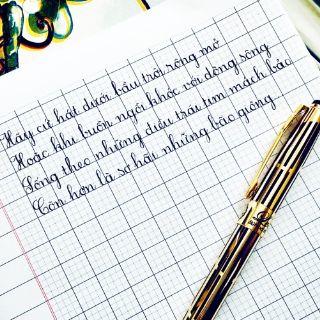 Hãy cứ hát dưới bầu trời rộng mở
Hoặc khi buồn ngồi khóc với dòng sông
Sống theo những điều trái tim mách bảo
Còn hơn là sợ hãi những bão giông